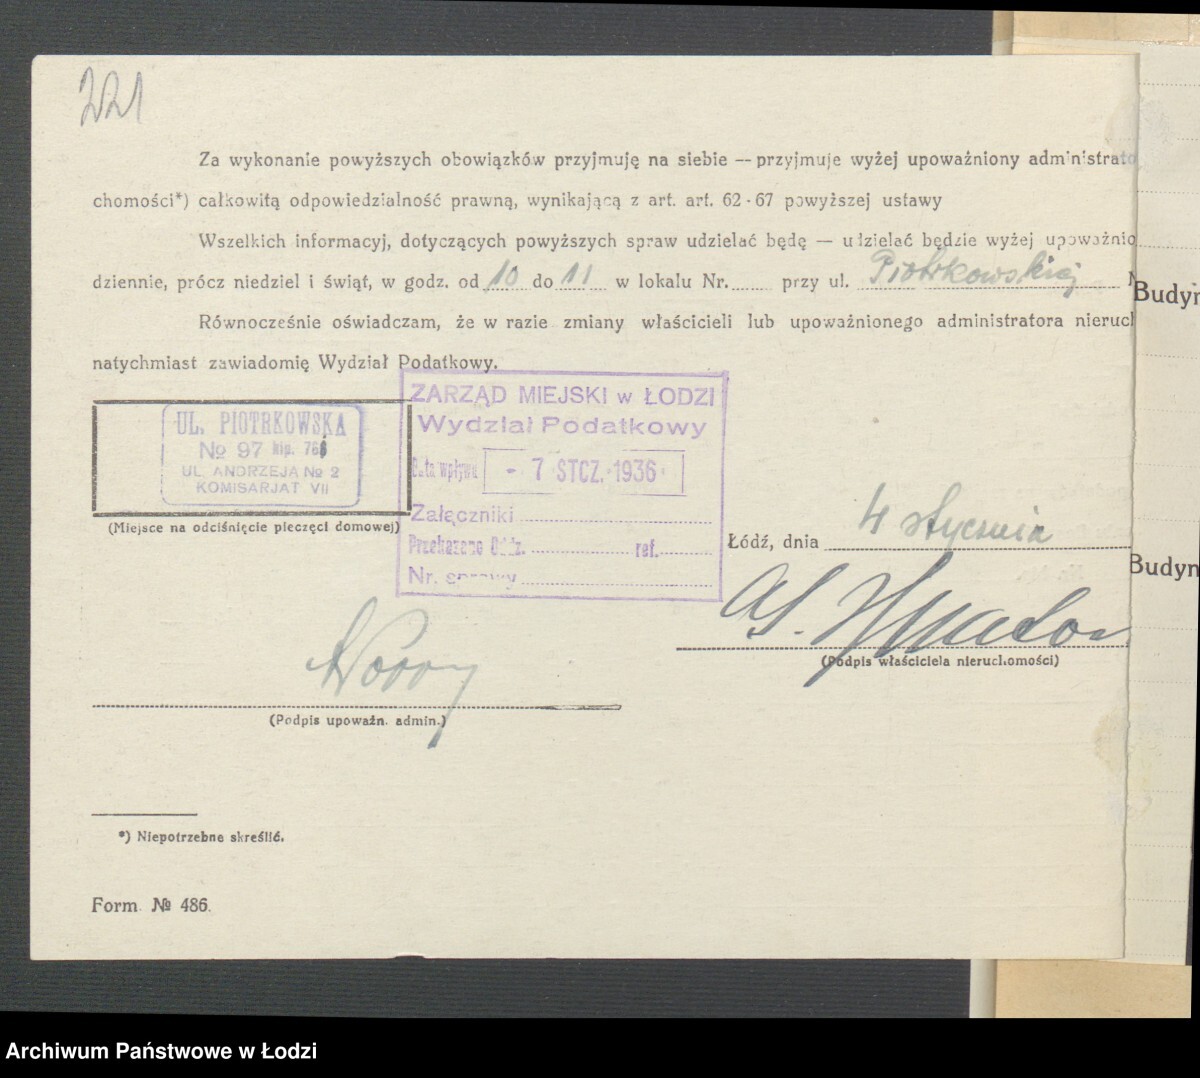 221
Za wykonanie powyższych obowiązków przyjmuję na siebie — przyjmuje wyżej upoważniony administrato
chomości*) całkowitą odpowiedzialność prawną, wynikającą z art. art. 62-67 powyższej ustawy
Wszelkich informacyj, dotyczących powyższych spraw udzielać będę — udzielać będzie wyżej upoważnio
dziennie, prócz niedziel i świąt, w godz. od 10 do 11 w lokalu Nr. przy ul. Piotrkowskiej
Budyn
Równocześnie oświadczam, że w razie zmiany właścicieli lub upoważnionego administratora nieruch
natychmiast zawiadomię Wydział Podatkowy.
UL. PIOTRKOWSKA
No 97 hip.
UL. ANDRZEJA No 2
KOMISARJAT VII
(Miejsce na odciśnięcie pieczęci domowej)
ZARZĄD MIEJSKI w ŁODZI
Wydział Podatkowy
Data wpływu - 7 STCZ. 1936
Załączniki
Przekazano Odz. ref.
Nr. sprawy
Łódź, dnia 4 stycznia
Budyn
(Podpis właściciela nieruchomości)
(Podpis upoważn. admin.)
*) Niepotrzebne skreślić.
Form № 486.
Archiwum Państwowe w Łodzi